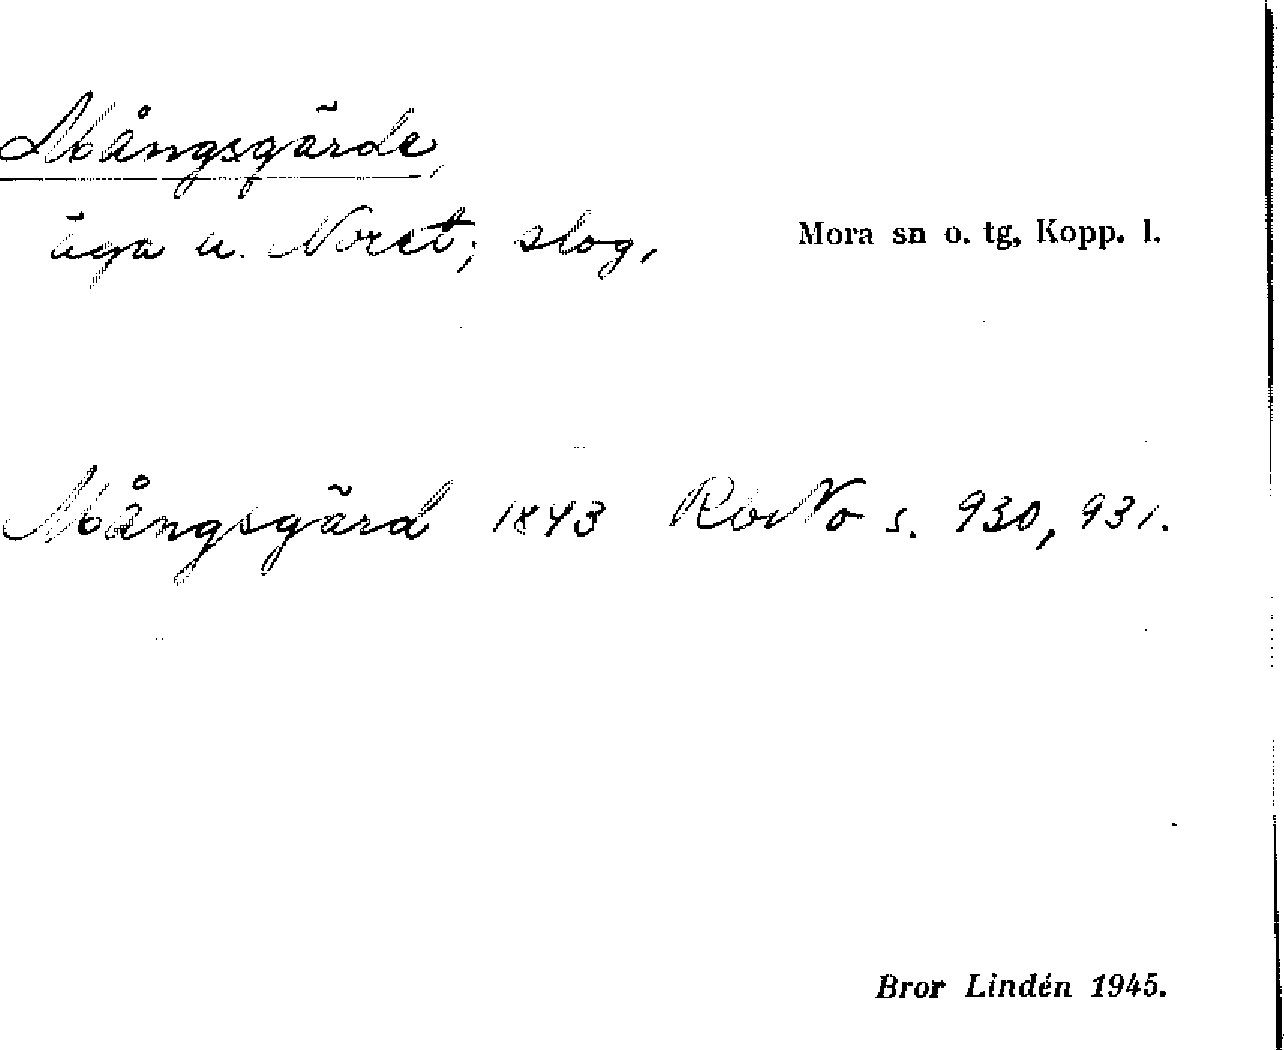 Mångsgärde,
äga u. Noret; slog,
Mora sn o. tg, Kopp. l.
Mångsgärd 1843 RbNo s. 930, 931.
Bror Lindén 1945.